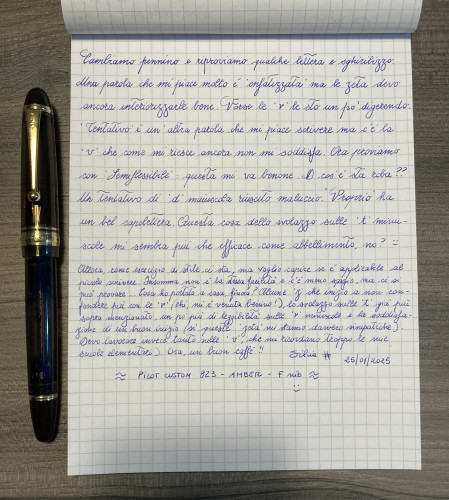 Cambiamo pennino e riproviamo qualche lettera e sghiribizzo.
Una parola che mi piace molto è "enfatizzata" ma le zeta devo
ancora interiorizzarle bene. Verso le "r" le sto un po' digerendo.
"Tentativo" è un'altra parola che mi piace scrivere ma c'è la
"v" che come mi riesce ancora non mi soddisfa. Ora proviamo
con "Semiflessibile": questa mi va benone. D cos'è sta roba??
Un tentativo di "d" maiuscola riuscito maluccio. "Proprio" ha
un bel capolettera. Questa cosa dello svolazzo sulle "t" minu-
scole mi sembra più che efficace come abbellimento, no? :)
Allora, come esercizio di stile ci sta, ma voglio capire se è applicabile al
piccolo scrivere. Insomma non è la stessa facilità e c'è meno spazio, ma ci si
può provare. Cosa ho portato a casa finora? Alcune "z" che inizio a non con-
fondere più con le "r", (ma, mi è venuta benino!), lo svolazzo sulle "t" già più
sopra menzionato, un po' più di leggibilità sulle "r" minuscole e la soddisfa-
zione di un buon inizio (sì queste "zeta" mi stanno davvero simpatiche).
Devo lavorare invece tanto sulle "v", che mi ricordano troppo le mie
scuole elementari). Ora un buon caffè!!
Silvia # 25/01/2025
≈ PILOT CUSTOM 823 - AMBER - F nib ≈
:)